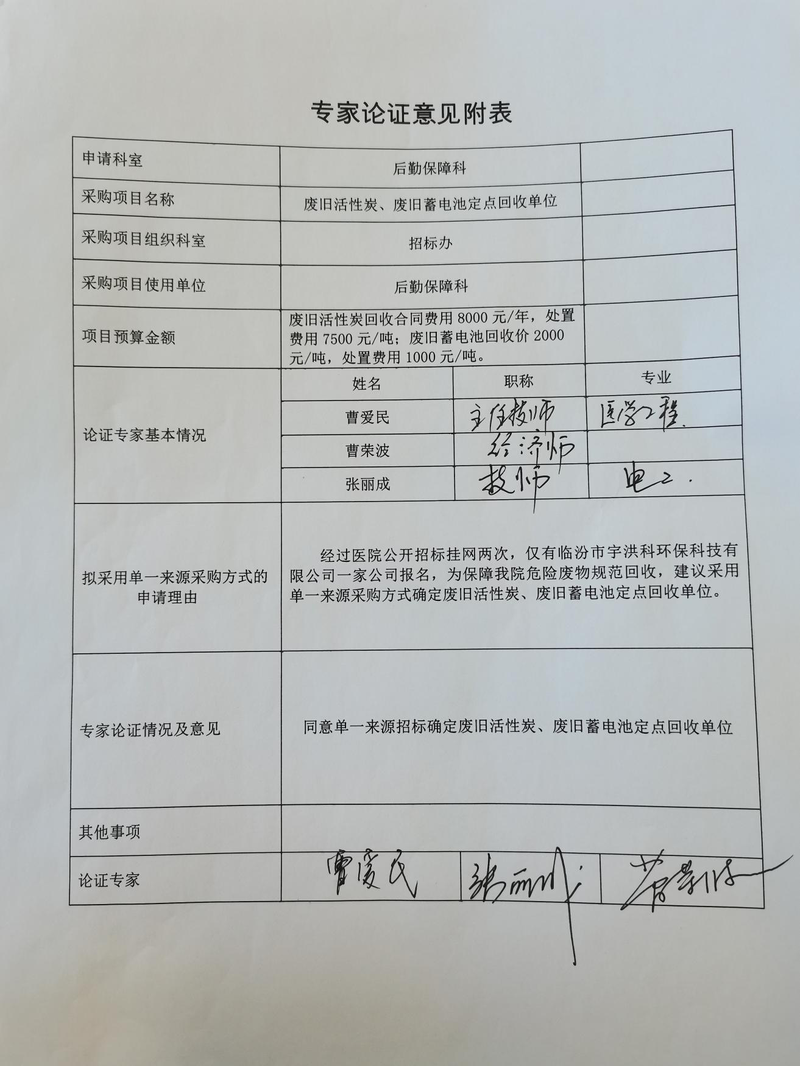 专家论证意见附表
申请科室 后勤保障科
采购项目名称 废旧活性炭、废旧蓄电池定点回收单位
采购项目组织科室 招标办
采购项目使用单位 后勤保障科
项目预算金额
废旧活性炭回收合同费用 8000 元/年，处置
费用 7500 元/吨；废旧蓄电池回收价 2000
元/吨，处置费用 1000 元/吨。
论证专家基本情况
姓名 职称 专业
曹爱民 主任技师 医学工程
曹荣波 经济师
张丽成 技师 电工
拟采用单一来源采购方式的
申请理由
经过医院公开招标挂网两次，仅有临汾市宇洪科环保科技有
限公司一家公司报名，为保障我院危险废物规范回收，建议采用
单一来源采购方式确定废旧活性炭、废旧蓄电池定点回收单位。
专家论证情况及意见 同意单一来源招标确定废旧活性炭、废旧蓄电池定点回收单位
其他事项
论证专家 曹爱民 张丽成 曹荣波